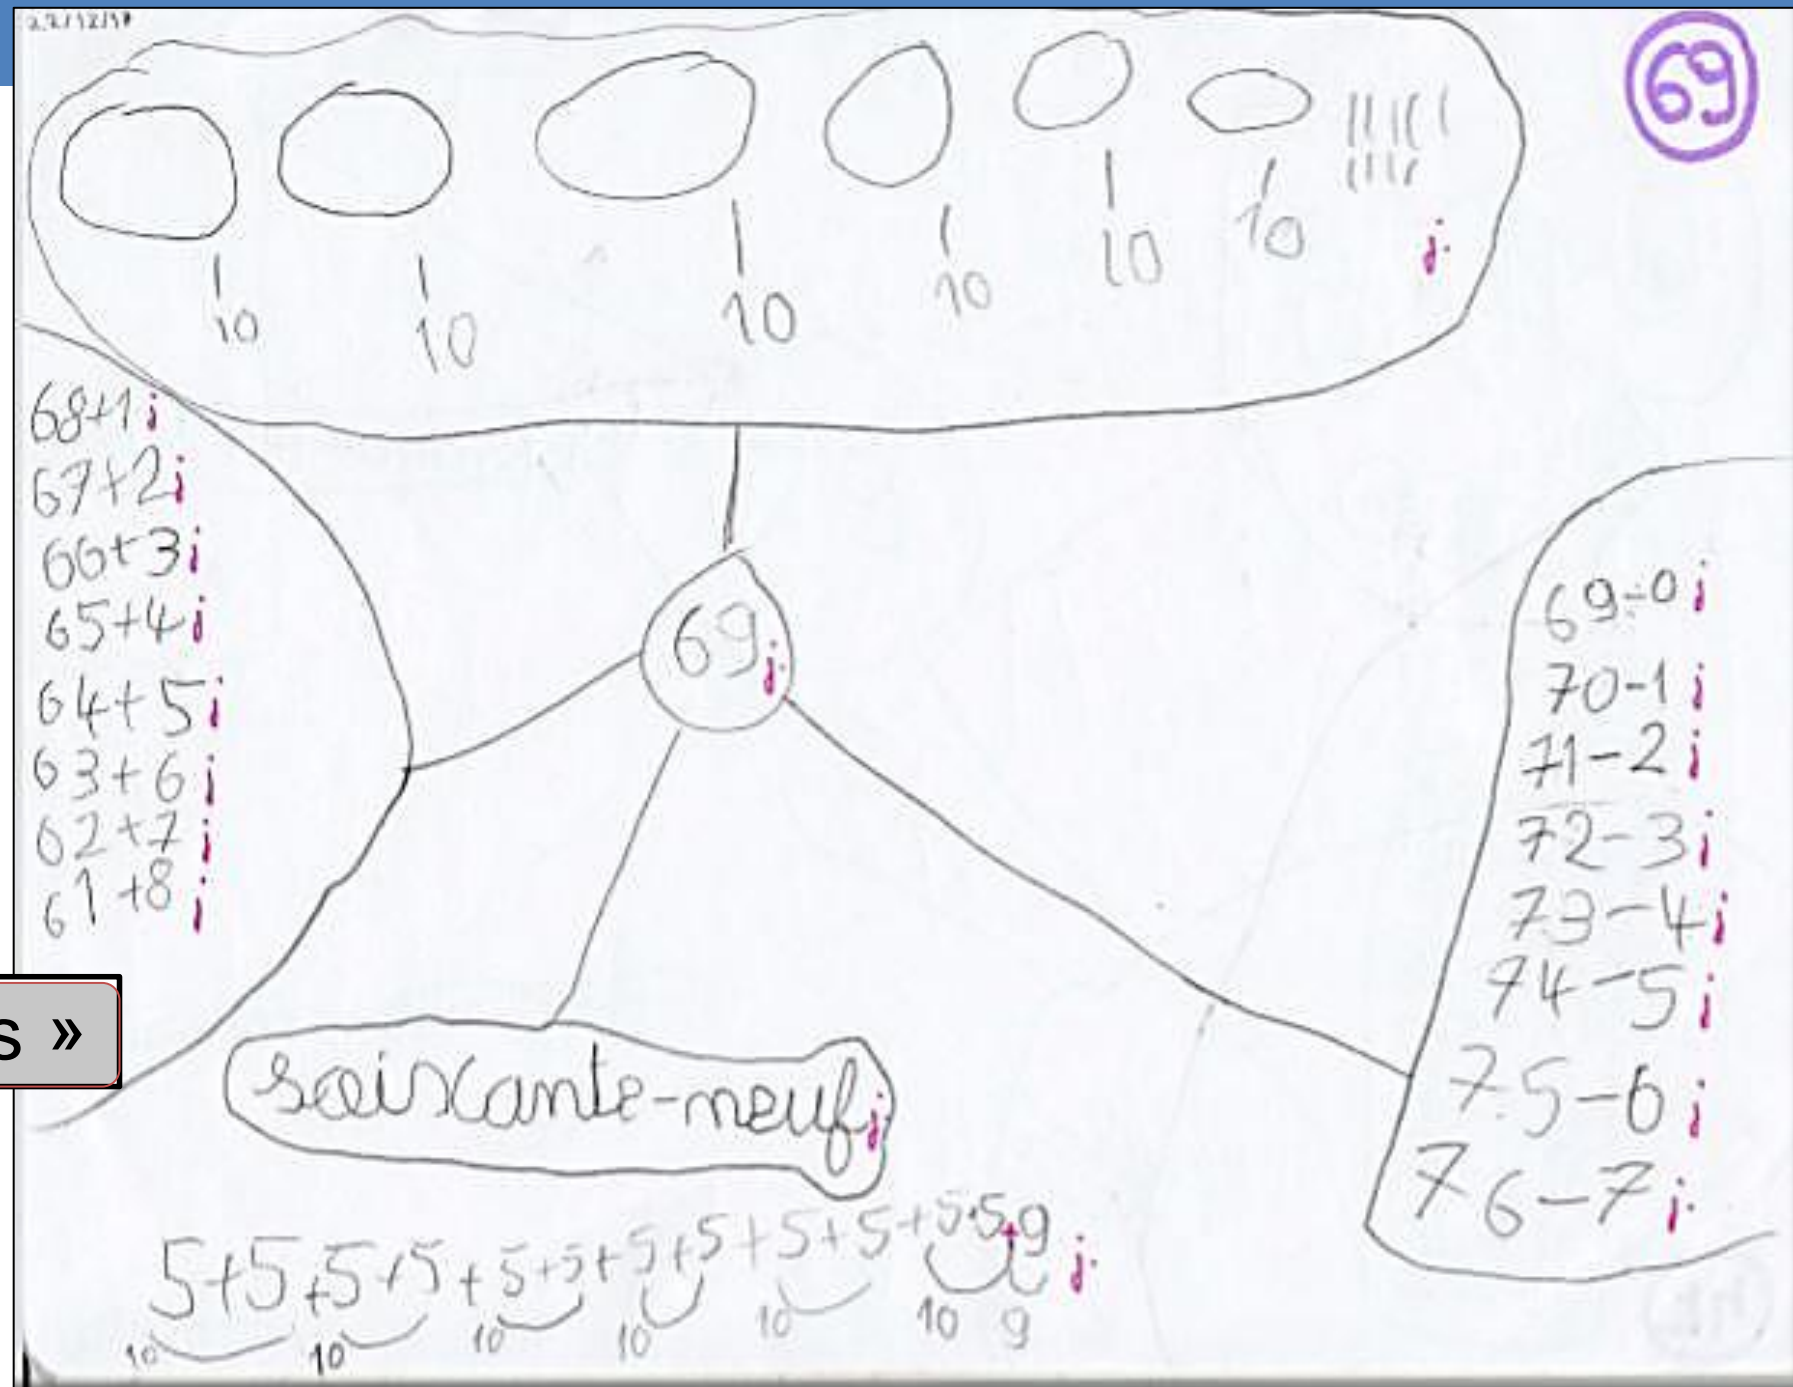 69
10 10 10 10 10 10
j.
68+1 j
67+2 j
66+3 j
65+4 j
64+5 j
63+6 j
62+7 j
61+8 j
69 j.
69-0 j
70-1 j
71-2 j
72-3 j
73-4 j
74-5 j
75-6 j
76-7 j.
s »
soixante-neuf j
5+5+5+5+5+5+5+5+5+5+5+5+9 j.
10 10 10 10 10 10 9